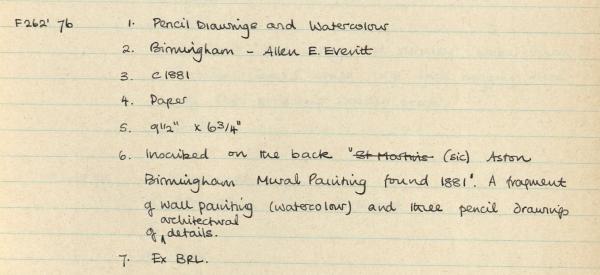 F262' 76 1. Pencil Drawings and Watercolour
2. Birmingham - Allen E. Everitt
3. c 1881
4. Paper
5. 9 1/2" x 6 3/4"
6. Inscribed on the back "St Martins (sic) Aston
Birmingham Mural Painting found 1881". A fragment
of wall painting (watercolour) and three pencil drawings
of architectural details.
7. Ex BRL.